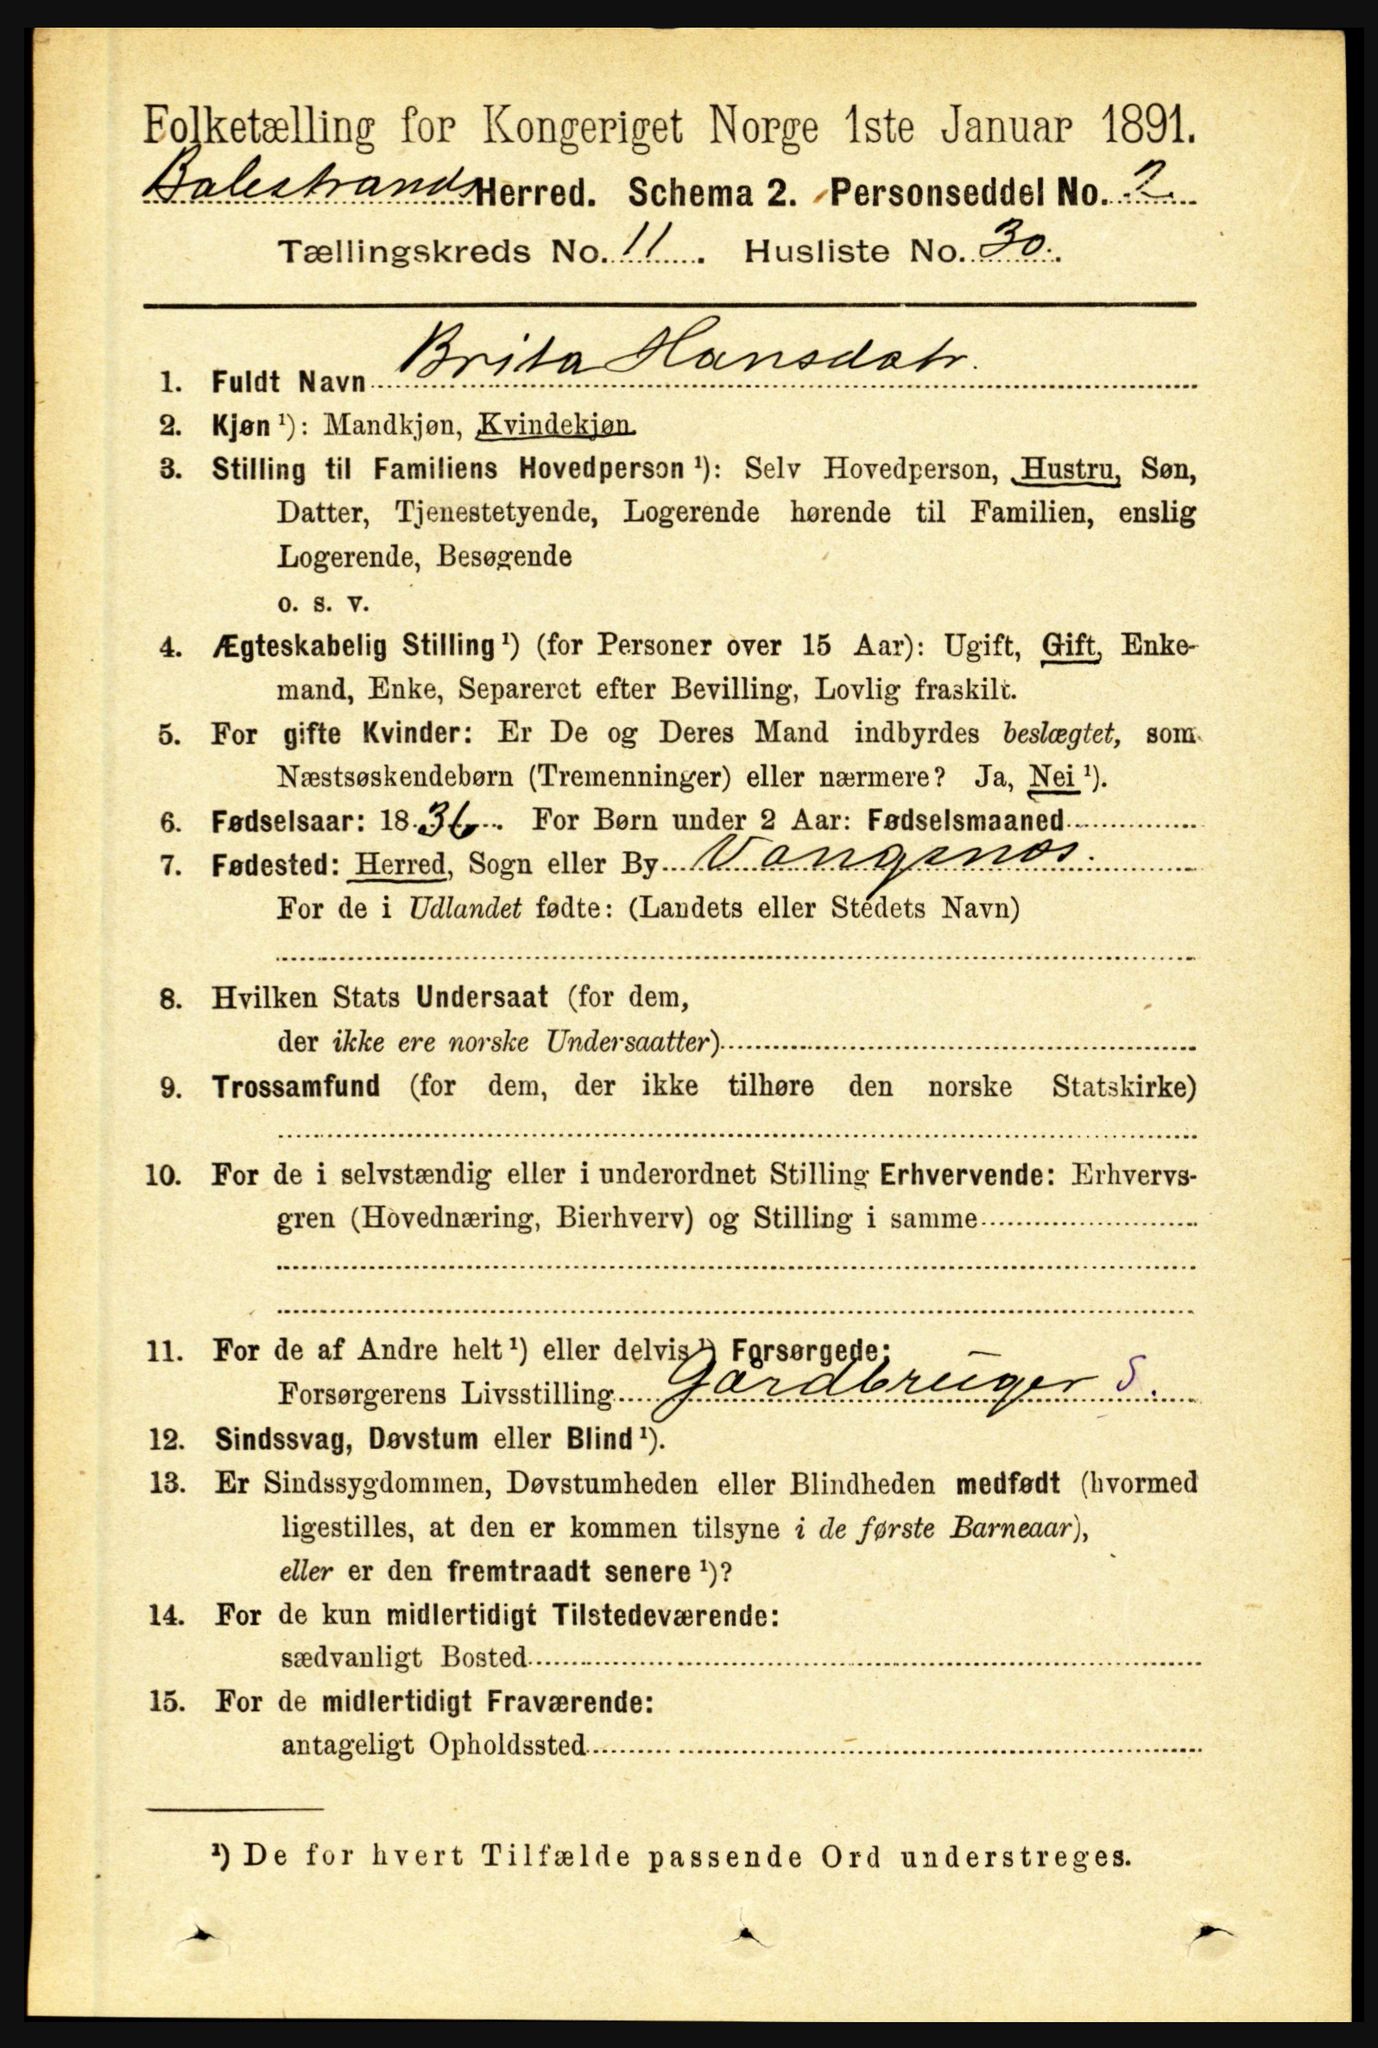 Folketælling for Kongeriget Norge 1ste Januar 1891.
Balestrands Herred. Schema 2. Personseddel No. 2.
Tællingskreds No. 11. Husliste No. 30.
1. Fuldt Navn Brita Hansdatr.
2. Kjøn ¹): Mandkjøn, Kvindekjøn.
3. Stilling til Familiens Hovedperson ¹): Selv Hovedperson, Hustru, Søn,
Datter, Tjenestetyende, Logerende hørende til Familien, enslig
Logerende, Besøgende
o. s. v.
4. Ægteskabelig Stilling ¹) (for Personer over 15 Aar): Ugift, Gift, Enke-
mand, Enke, Separeret efter Bevilling, Lovlig fraskilt.
5. For gifte Kvinder: Er De og Deres Mand indbyrdes beslægtet, som
Næstsøskendebørn (Tremenninger) eller nærmere? Ja, Nei ¹).
6. Fødselsaar: 1836. For Børn under 2 Aar: Fødselsmaaned
7. Fødested: Herred, Sogn eller By Vangsnæs.
For de i Udlandet fødte: (Landets eller Stedets Navn)
8. Hvilken Stats Undersaat (for dem,
der ikke ere norske Undersaatter)
9. Trossamfund (for dem, der ikke tilhøre den norske Statskirke)
10. For de i selvstændig eller i underordnet Stilling Erhvervende: Erhvervs-
gren (Hovednæring, Bierhverv) og Stilling i samme
11. For de af Andre helt ¹) eller delvis ¹) Forsørgede:
Forsørgerens Livsstilling Gardbruger S.
12. Sindssvag, Døvstum eller Blind ¹).
13. Er Sindssygdommen, Døvstumheden eller Blindheden medfødt (hvormed
ligestilles, at den er kommen tilsyne i de første Barneaar),
eller er den fremtraadt senere ¹)?
14. For de kun midlertidigt Tilstedeværende:
sædvanligt Bosted
15. For de midlertidigt Fraværende:
antageligt Opholdssted
¹) De for hvert Tilfælde passende Ord understreges.